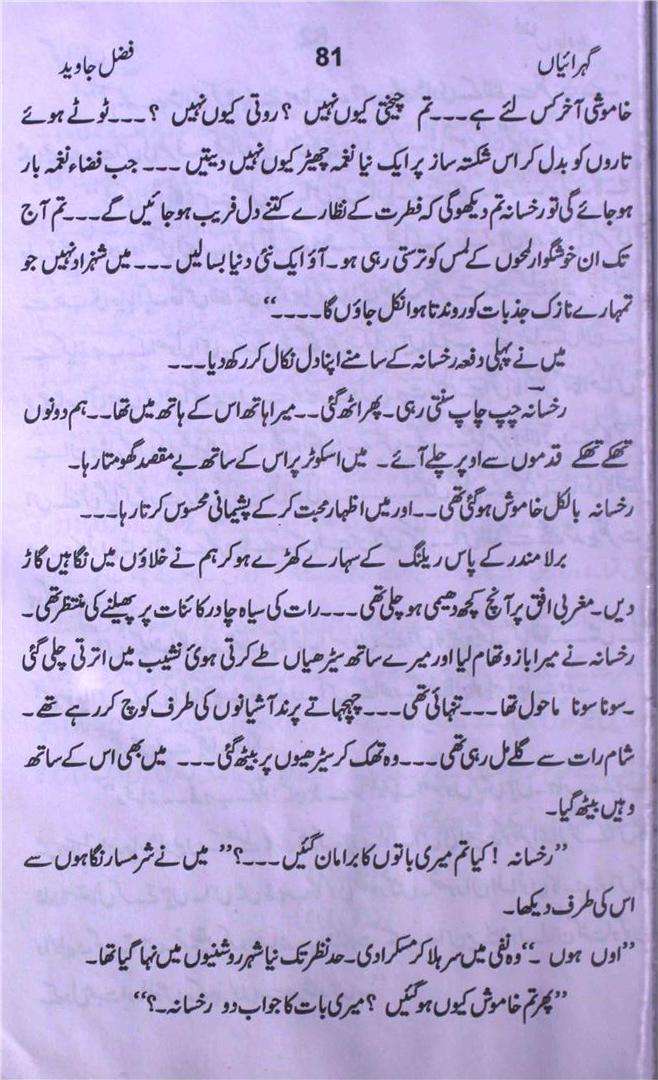 گہرائیاں 81 فضل جاوید
خاموشی آخر کس لئے ہے۔۔۔تم چیختی کیوں نہیں ؟ روتی کیوں نہیں ؟ ۔۔۔ ٹوٹے ہوئے
تاروں کو بدل کر اس شکستہ ساز پر ایک نیا نغمہ چھیڑ کیوں نہیں دیتیں ۔۔۔ جب فضاء نغمہ بار
ہو جائے گی تو رخسانہ تم دیکھو گی کہ فطرت کے نظارے کتنے دل فریب ہو جائیں گے۔۔۔تم آج
تک ان خوشگوار لمحوں کے لمس کو ترستی رہی ہو۔ آؤ ایک نئی دنیا بسا لیں ۔۔۔ میں شہزاد نہیں جو
تمہارے نازک جذبات کو روندتا ہوا نکل جاؤں گا۔۔۔۔‘‘
میں نے پہلی دفعہ رخسانہ کے سامنے اپنا دل نکال کر رکھ دیا۔۔۔
رخسانہ چپ چاپ سنتی رہی۔ پھر اٹھ گئی۔۔میرا ہاتھ اس کے ہاتھ میں تھا۔۔ہم دونوں
تھکے تھکے قدموں سے اوپر چلے آئے۔ میں اسکوٹر پر اس کے ساتھ بے مقصد گھومتا رہا۔
رخسانہ بالکل خاموش ہوگئی تھی۔۔اور میں اظہار محبت کر کے پشیمانی محسوس کرتا رہا۔۔۔
برلا مندر کے پاس ریلنگ کے سہارے کھڑے ہو کر ہم نے خلاؤں میں نگاہیں گاڑ
دیں۔ مغربی افق پر آنچ کچھ دھیمی ہو چلی تھی۔۔۔رات کی سیاہ چادر کائنات پر پھیلنے کی منتظر تھی۔
رخسانہ نے میرا بازو تھام لیا اور میرے ساتھ سیڑھیاں طے کرتی ہوئی نشیب میں اترتی چلی گئی
۔سونا سونا ماحول تھا۔۔۔تنہائی تھی۔۔۔چہچہاتے پرند آشیانوں کی طرف کوچ کر رہے تھے۔
شام رات سے گلے مل رہی تھی۔۔۔وہ تھک کر سیڑھیوں پر بیٹھ گئی۔۔۔ میں بھی اس کے ساتھ
وہیں بیٹھ گیا۔
’’رخسانہ ! کیا تم میری باتوں کا برا مان گئیں ۔۔۔؟‘‘ میں نے شرمسار نگاہوں سے
اس کی طرف دیکھا۔
’’اوں ہوں ۔‘‘وہ نفی میں سر ہلا کر مسکرا دی۔ حد نظر تک نیا شہر روشنیوں میں نہا گیا تھا۔
’’پھر تم خاموش کیوں ہو گئیں ؟ میری بات کا جواب دو رخسانہ۔؟‘‘